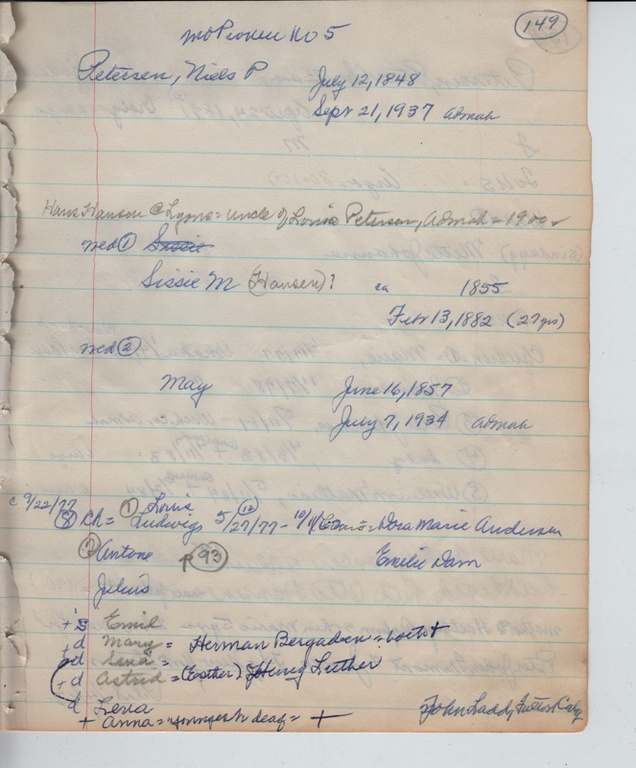 149
No 5
Petersen, Niels P July 12, 1848
Sept 21, 1937 Admah
Hans Hansen @ Lyons = uncle of Louis Petersen, Admah = 1900
med ① Sissie
Sissie M (Hansen)? ca 1855
Febr 13, 1882 (27 yrs)
med ②
May June 16, 1857
July 7, 1934 Admah
c 9/22/77
⑧ Ch = ① Louis
Ludwig 5/27/77 - = Dora Marie Andersen
② Antone 93 Emilie Dam
Julius
+ s Emil
+ d Mary = Herman Bergadsen =
d Lena
+ d Astrid = (Esther) Henry Luther
d Lena
+ Anna = youngest deaf = +
John Laddy